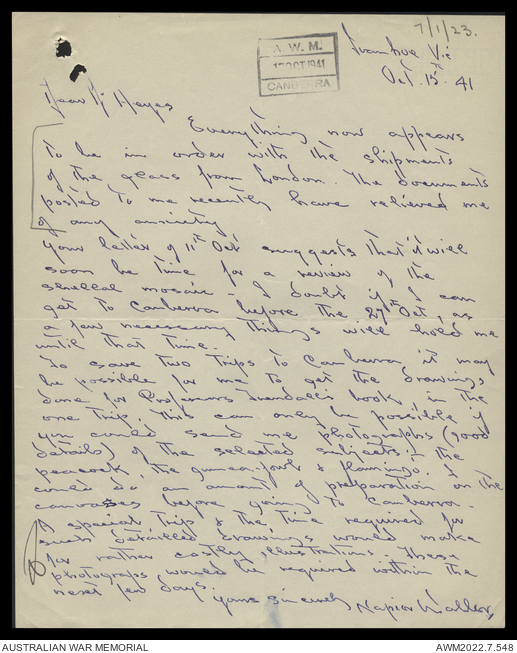 7/1/23.
A.W.M.
17 OCT 1941
CANBERRA
Ivanhoe Vic
Oct. 15th 41
Dear Mr Heyes
Everything now appears
to be in order with the shipments
of the glass from London. The documents
posted to me recently have relieved me
of any anxiety
Your letter of 11th Oct suggests that it will
soon be time for a review of the
Shellal mosaic - I doubt if I can
get to Canberra before the 27th Oct, as
a few necessary things will hold me
until that time.
To save two trips to Canberra it may
be possible for me to get the drawings
done for Professors Trendall's book, in the
one trip. This can only be possible if
you could send me photographs (good
details) of the selected subjects, - the
peacock, the guinea-fowl & flamingo. I
could do an amount of preparation on the
canvases before going to Canberra.
A special trip & the time required for
such detailed drawings would make
for rather costly illustrations. These
photograps would be required within the
next few days.
yours sincerely
Napier Waller,
AUSTRALIAN WAR MEMORIAL
AWM2022.7.548